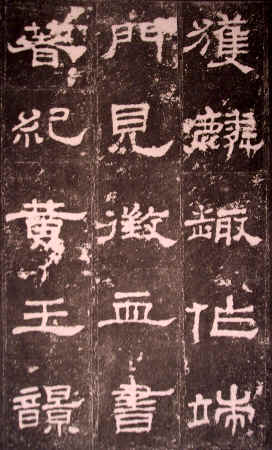 獲麟趣作端
門見徵血書
著紀黃玉響